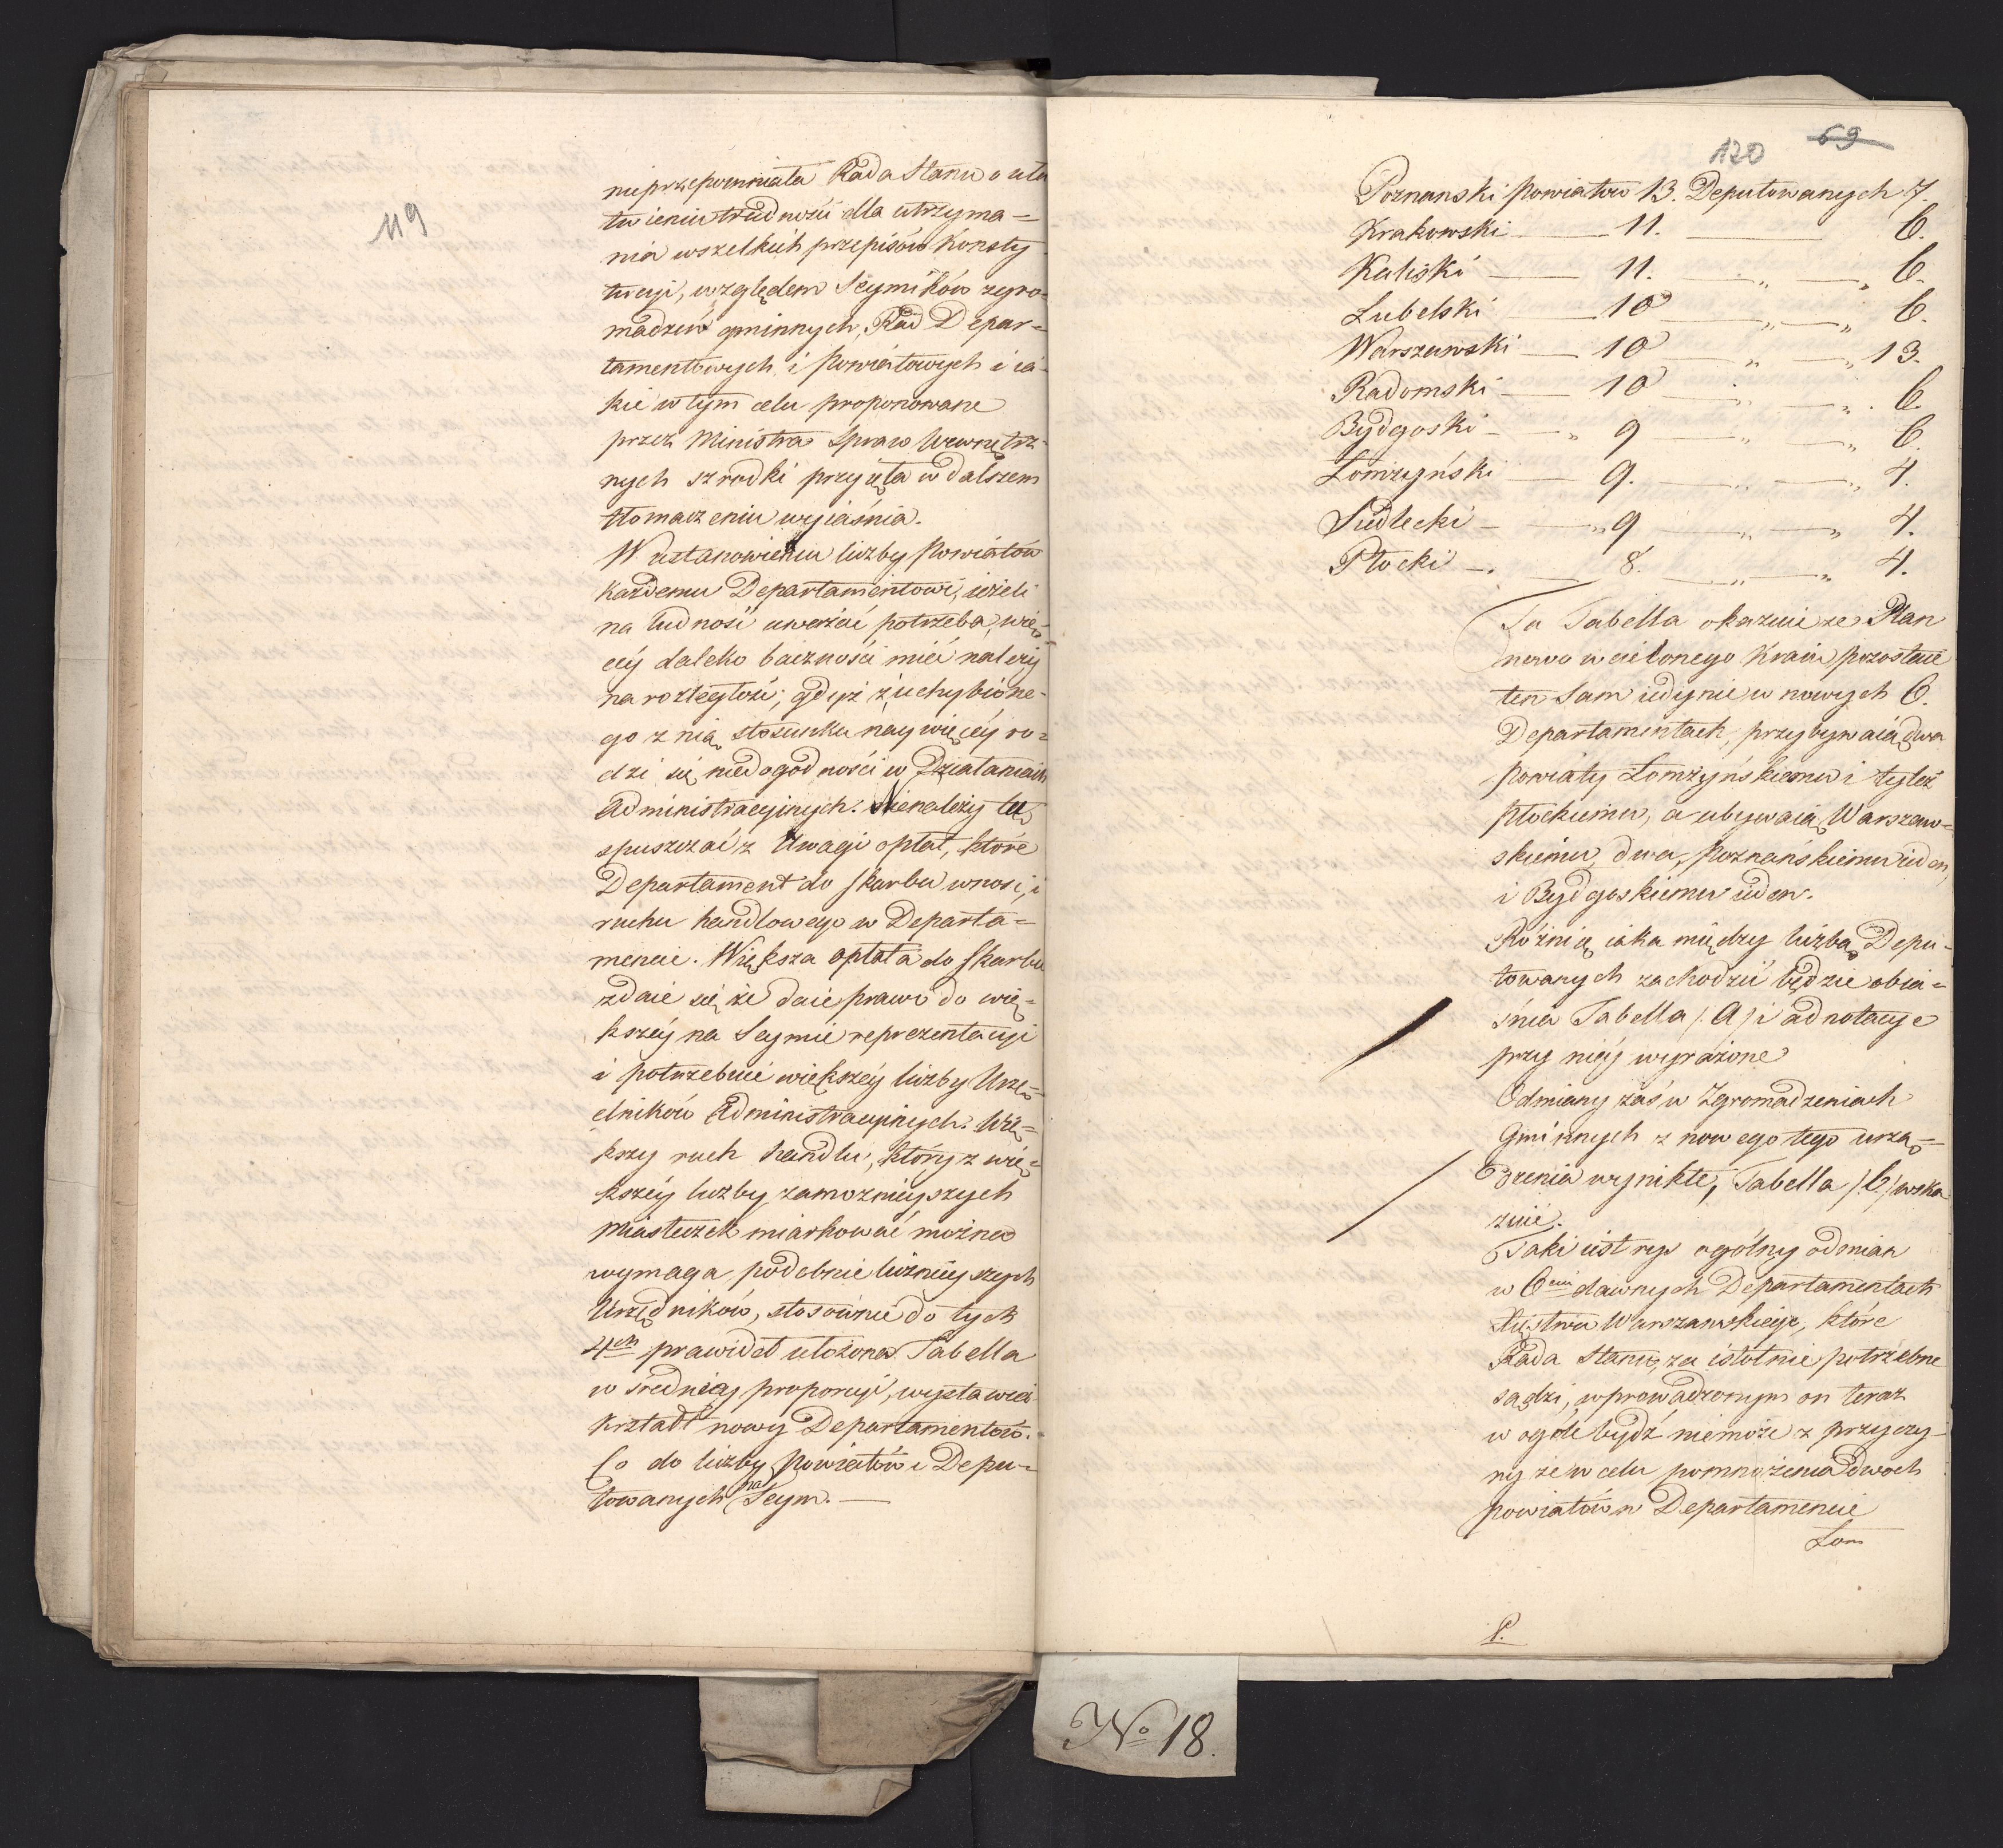 119
nieprzepomniała Rada Stanu o uła
twieniu trudności dla utrzyma=
nia wszelkich przepisów Konsty
tucyi, względem Seymików zgro=
madzeń gminnych, Rad Depar=
tamentowych i Powiatowych i ia
kie w tym celu proponowane
przez Ministra Spraw Wewnętrz=
nych szrodki przyięła w dalszem
tłomaczeniu wyiaśnia.
W ustanowieniu liczby Powiatów
każdemu Departamentowi, ieżeli
na ludność uważać potrzeba, wię=
céy daleko baczności mieć należy
na rozległość; gdyż z uchybione=
go z nią stosunku naywięcéy ro=
dzi się niedogodności w Działaniach
Administracyinych. Nienależy tu
spuszczać z Uwagi opłat, które
Departament do skarbu wnosi, i
ruchu handlowego w Departa=
mencie. Większa opłata do skarbu
zdaie się że daie prawo do wię=
kszéy na Seymie reprezentacyi
i potrzebuie większéy liczby Urzę=
dników Administracyinych. Wię=
kszy ruch handlu, który z wię=
kszéy liczby zamożnieyszych
Miasteczek miarkować można
wymaga podobnie licznieyszych
Urzędników, stosownie do tych
4ech prawideł ułożona Tabella
w średniey proporcyi, wystawia
kształt nowy Departamentów.
Co do liczby Powiatów i Depu=
towanych na Seym. —
120 69
Poznanski Powiatów 13. Deputowanych 7.
Krakowski — 11. — 6.
Kaliski — 11. „ — „ 6.
Lubelski — 10 „ — „ 6.
Warszawski — 10 „ „ 13.
Radomski — 10 „ — „ 6.
Bydgoski — „ 9 „ — „ 6.
Łomżyński — 9. „ — „ 4.
Siedlecki — „ 9 „ — „ 4.
Płocki — 8. „ — „ 4.
Ta Tabella okazuie że Plan
nowo wcielonego Kraiu pozostaie
ten sam iedynie w nowych 6.
Departamentach, przybywaią dwa
powiaty Łomżyńskiemu i tyleż
Płockiemu, a ubywaią Warszaw=
skiemu dwa, Poznańskiemu ieden,
i Bydgoskiemu ieden.
Różnicę iaka między liczbą Depu=
towanych zachodzić będzie obia=
śnia Tabella /: A / i adnotacye
przy niéy wyrażone
Odmiany zaś w Zgromadzeniach
Gminnych z nowego tego urzą=
dzenia wynikłe, Tabella /: C / wska
zuie.
Taki iest rys ogólny odmian
w 6ciu dawnych Departamentach
Xięstwa Warszawskiego, które
Rada Stanu, za istotnie potrzebne
sądzi, wprowadzonym on teraz
w ogóle bydź niemoże z przyczy=
ny że w celu pomnożenia dwoch
powiatów w Departamencie
Łom
No 18.